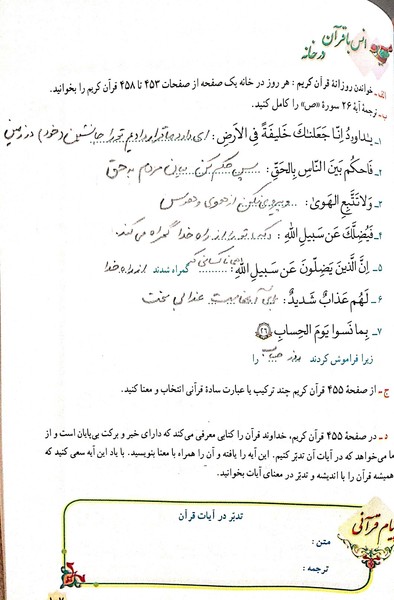 انس با قرآن در خانه
الف - خواندن روزانهٔ قرآن کریم : هر روز در خانه یک صفحه از صفحات ۴۵۳ تا ۴۵۸ قرآن کریم را بخوانید.
ب - ترجمهٔ آیهٔ ۲۶ سورهٔ «ص» را کامل کنید.
۱- یٰداوودُ اِنّا جَعَلناکَ خَلیفَةً فِی الاَرضِ : ای داوود ما قرار دادیم تو را جانشین (خود) در زمین
۲- فَاحکُم بَینَ النّاسِ بِالحَقِّ : پس حکم کن میان مردم به حق
۳- وَلا تَتَّبِعِ الهَویٰ : و پیروی نکن از هوی و هوس
۴- فَیُضِلَّکَ عَن سَبیلِ اللّٰهِ : که تو را از راه خدا گمراه می کند.
۵- اِنَّ الَّذینَ یَضِلّونَ عَن سَبیلِ اللّٰهِ : کسانی که گمراه شدند از راه خدا
۶- لَهُم عَذابٌ شَدیدٌ : برای آنهاست عذابی سخت
۷- بِما نَسوا یَومَ الحِسابِ ۲۶
زیرا فراموش کردند روز حساب را
ج - از صفحهٔ ۴۵۵ قرآن کریم چند ترکیب یا عبارت سادهٔ قرآنی انتخاب و معنا کنید.
د - در صفحهٔ ۴۵۵ قرآن کریم، خداوند قرآن را کتابی معرفی می‌کند که دارای خیر و برکت بی‌پایان است و از
ما می‌خواهد که در آیات آن تدبّر کنیم. این آیه را یافته و آن را همراه با معنا بنویسید. با یاد این آیه سعی کنید که
همیشه قرآن را با اندیشه و تدبّر در معنای آیات بخوانید.
پیام قرآنی
تدبّر در آیات قرآن
متن :
ترجمه :